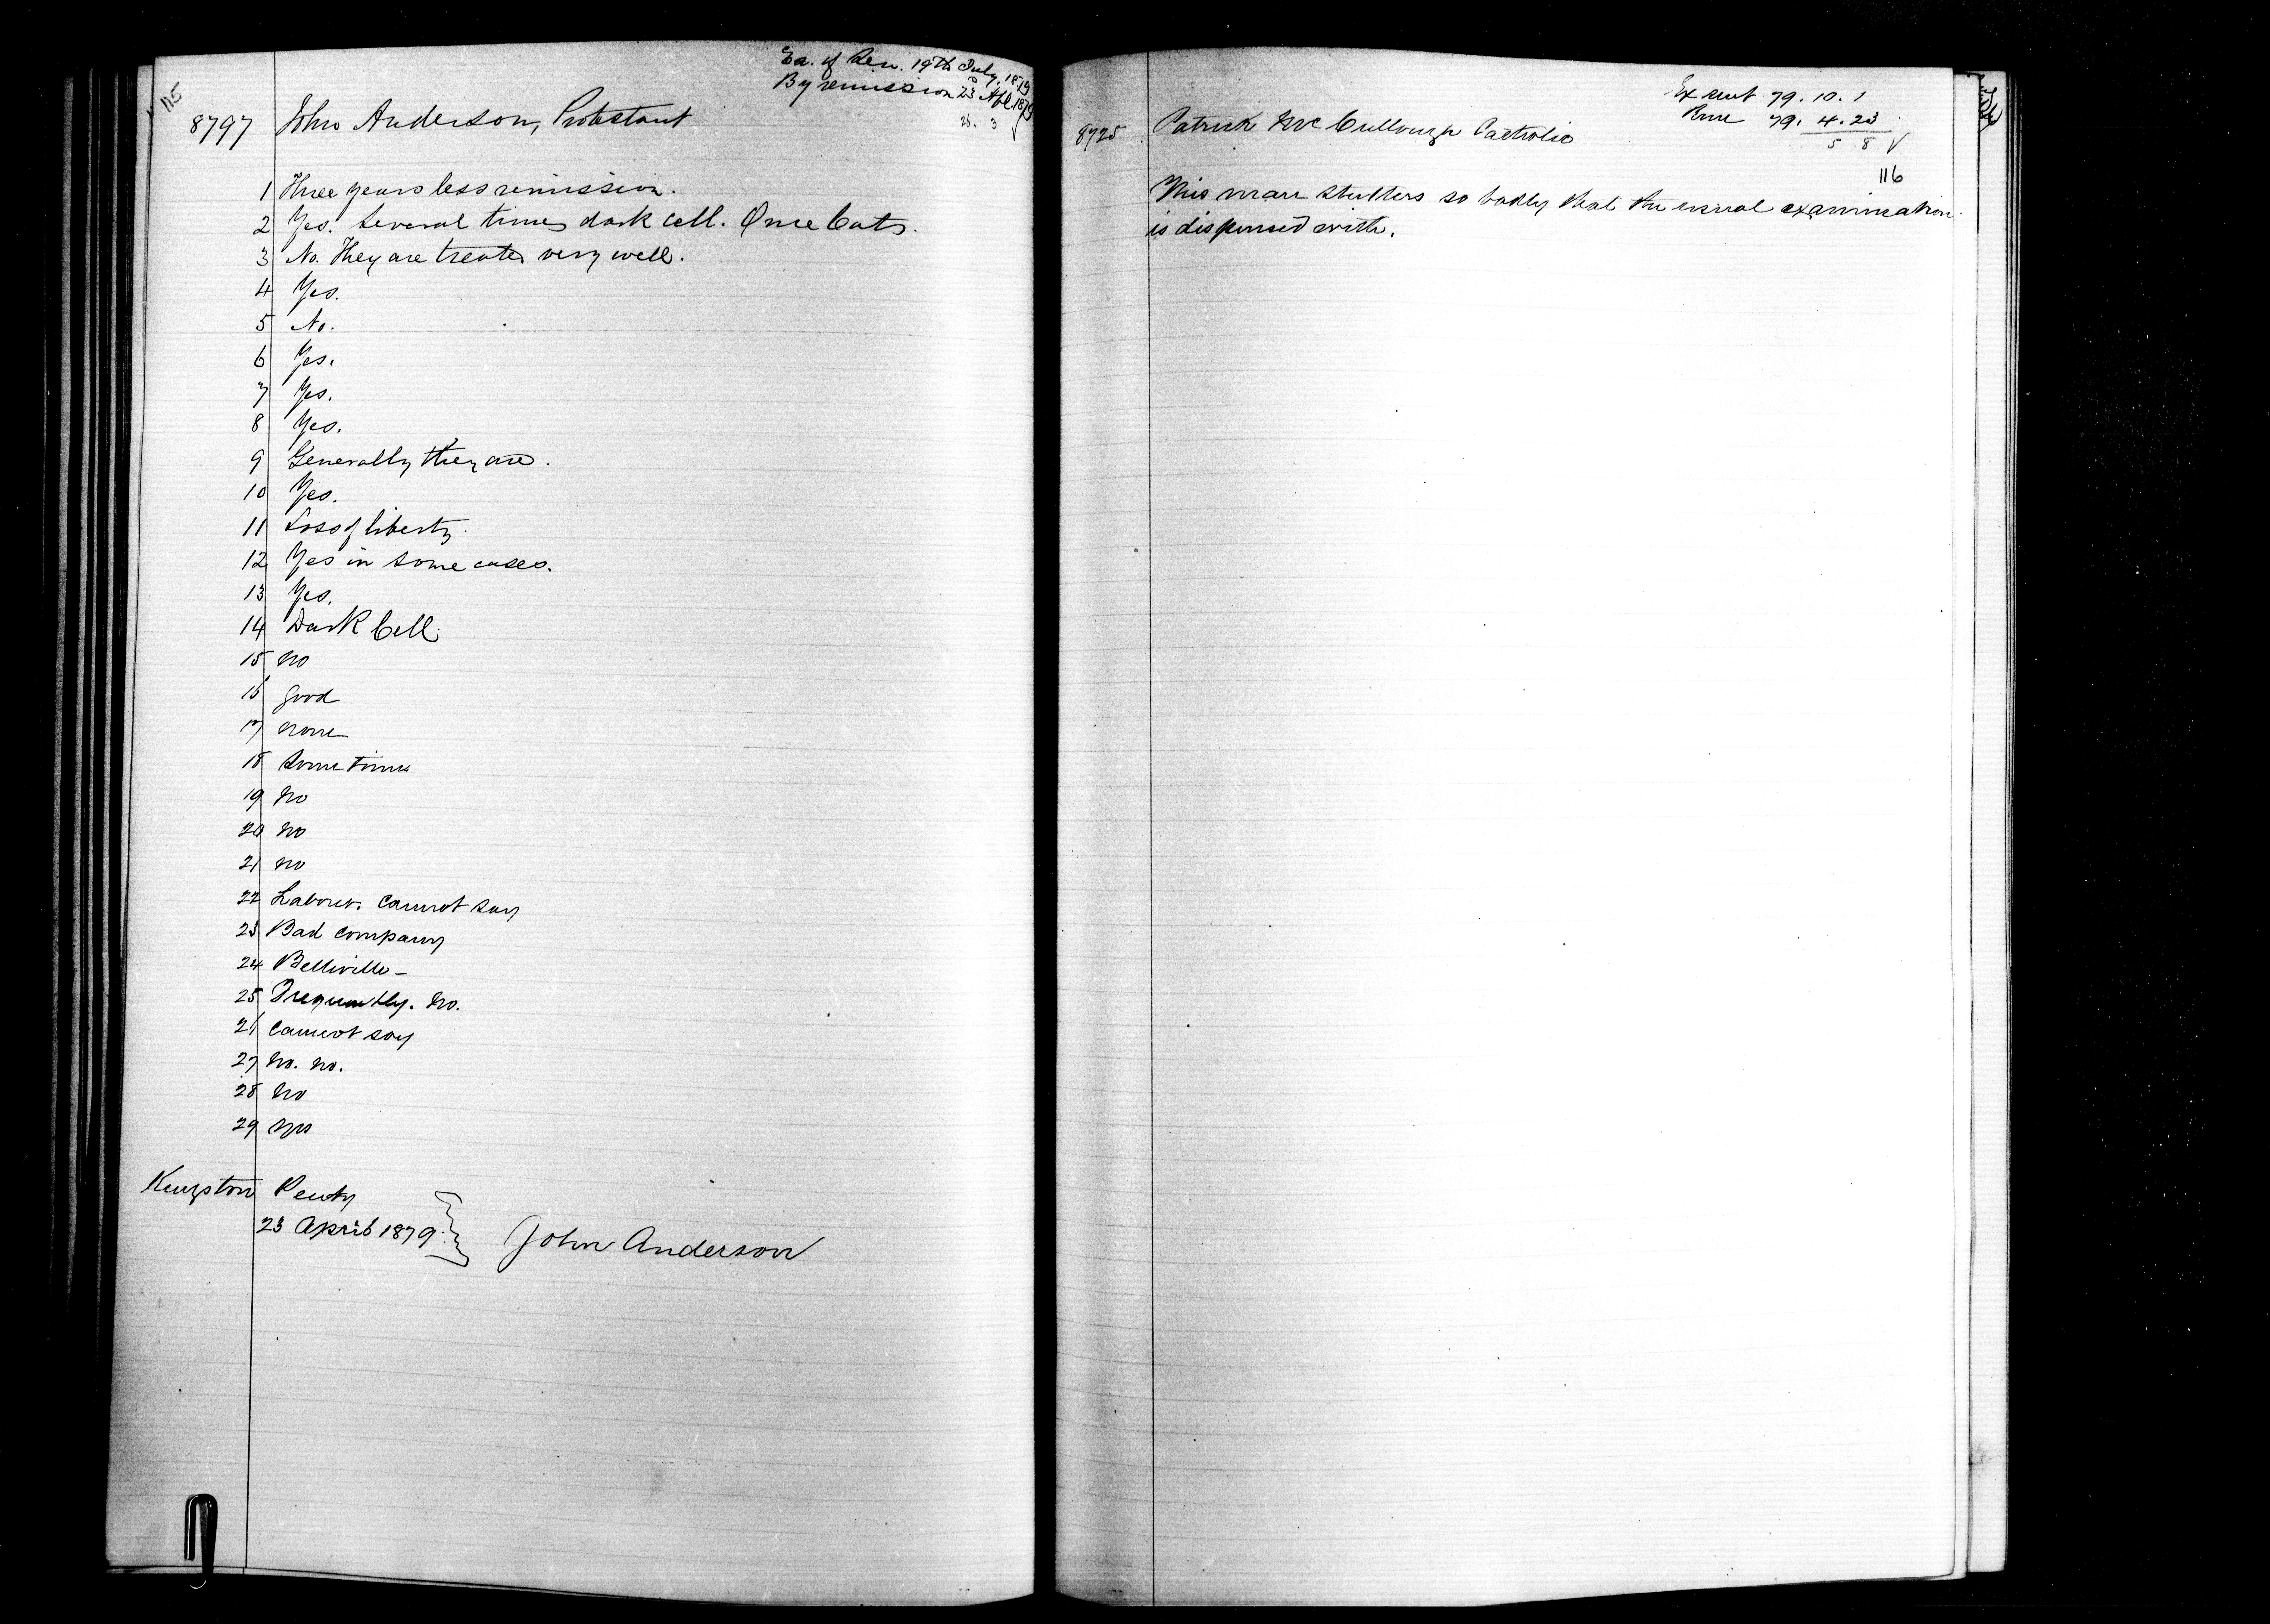 115
Ex. of Sen. 19th July, 1879
By remission 23 Apl 1879
26. 3
8797 John Anderson, Protestant
1 Three years less remission.
2 Yes. Several times dark cell. Once Cats.
3 No. They are treated very well.
4 Yes.
5 No.
6 Yes.
7 Yes.
8 Yes.
9 Generally they are.
10 Yes.
11 Loss of liberty.
12 Yes in some cases.
13 Yes.
14 Dark Cell.
15 no
16 good
17 none
18 Some times
19 no
20 no
21 no
22 Labour. Cannot say
23 Bad company
24 Belleville -
25 Frequently. no.
26 Cannot say
27 no. no.
28 no
29 yes
Kingston Penty
23 April 1879. John Anderson
Ex sent 79. 10. 1
Rem 79. 4. 23
5 8
116
8725 Patrick McCullough Catholic
This man stutters so badly that the usual examination
is dispensed with.